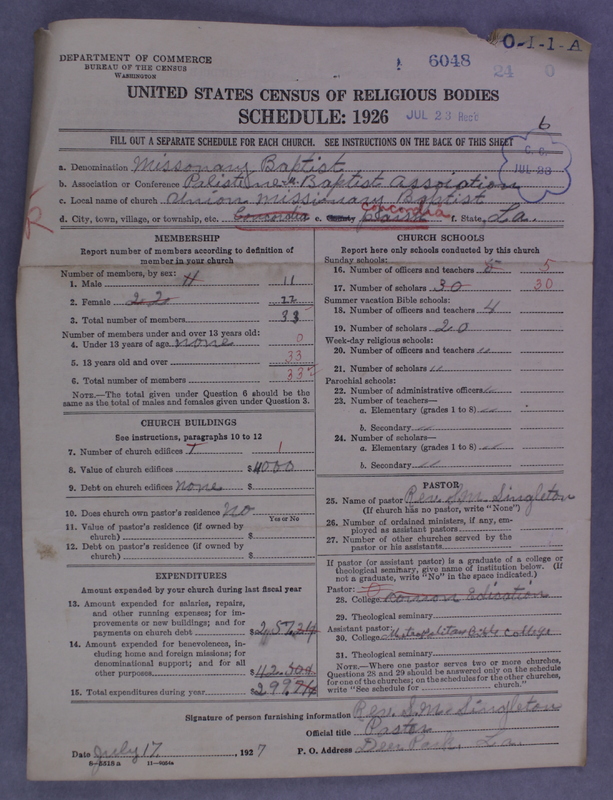 O-1-1-A
DEPARTMENT OF COMMERCE
BUREAU OF THE CENSUS
WASHINGTON
6048
24 0
UNITED STATES CENSUS OF RELIGIOUS BODIES
SCHEDULE: 1926
JUL 23 Recd
6
FILL OUT A SEPARATE SCHEDULE FOR EACH CHURCH. SEE INSTRUCTIONS ON THE BACK OF THIS SHEET
C. C.
JUL 23
a. Denomination Missonary Baptist
b. Association or Conference Palistine Baptist Association
c. Local name of church Union Missionary Baptist
d. City, town, village, or township, etc. Concordia e. County Concordia Parish f. State, La.
MEMBERSHIP
Report number of members according to definition of member in your church
Number of members, by sex:
1. Male 11 11
2. Female 22 22
3. Total number of members 33
Number of members under and over 13 years old:
4. Under 13 years of age none 0
5. 13 years old and over 33
6. Total number of members 33
NOTE.—The total given under Question 6 should be the same as the total of males and females given under Question 3.
CHURCH BUILDINGS
See instructions, paragraphs 10 to 12
7. Number of church edifices 1 1
8. Value of church edifices $4000
9. Debt on church edifices none $
10. Does church own pastor's residence? No
Yes or No
11. Value of pastor's residence (if owned by church) $
12. Debt on pastor's residence (if owned by church) $
EXPENDITURES
Amount expended by your church during last fiscal year
13. Amount expended for salaries, repairs, and other running expenses; for improvements or new buildings; and for payments on church debt $257.24
14. Amount expended for benevolences, including home and foreign missions; for denominational support; and for all other purposes $
15. Total expenditures during year $
CHURCH SCHOOLS
Report here only schools conducted by this church
Sunday schools:
16. Number of officers and teachers 5 5
17. Number of scholars 30 30
Summer vacation Bible schools:
18. Number of officers and teachers 4
19. Number of scholars 20
Week-day religious schools:
20. Number of officers and teachers "
21. Number of scholars "
Parochial schools:
22. Number of administrative officers "
23. Number of teachers—
a. Elementary (grades 1 to 8) "
b. Secondary "
24. Number of scholars—
a. Elementary (grades 1 to 8) "
b. Secondary "
PASTOR
25. Name of pastor Rev. S.M. Singleton
(If church has no pastor, write "None")
26. Number of ordained ministers, if any, employed as assistant pastors
27. Number of other churches served by the pastor or his assistants
If pastor (or assistant pastor) is a graduate of a college or theological seminary, give name of institution below. (If not a graduate, write "No" in the space indicated.)
Pastor:
28. College Common Edication
29. Theological seminary
Assistant pastor:
30. College Metropolitan Bible College
31. Theological seminary
NOTE.—Where one pastor serves two or more churches, Questions 28 and 29 should be answered only on the schedule for one of the churches; on the schedules for the other churches, write "See schedule for church."
Signature of person furnishing information Rev. S. M. Singleton
Official title Pastor
Date July 17, 1927 P. O. Address Deer Park, La.
8-5518a 11-9864a